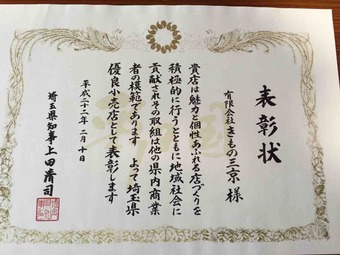 表彰状
有限会社きもの三京 様
貴店は魅力と個性あふれる店づくりを
積極的に行うとともに地域社会に
貢献されその取組は他の県内商業
者の模範であります よって埼玉県
優良小売店として表彰します
平成二十二年二月十日
埼玉県知事上田清司